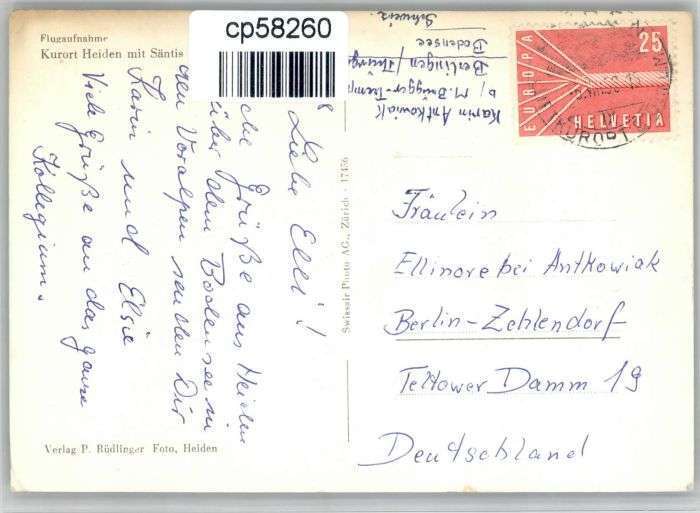 Flugaufnahme
Kurort Heiden mit Säntis
cp58260
8
Liebe Elli!
che Grüße aus Heiden
über dem Bodensee in
den Voralpen senden Dir
Karin und Elsie
Viele Grüße an das ganze
Kollegium.
Karin Antkowiak
b/ M. Brügger-
Berlingen /
Bodensee
Schweiz
EUROPA
25
HELVETIA
KURORT
Fräulein
Ellinore bei Antkowiak
Berlin-Zehlendorf
Teltower Damm 19
Deutschland
Swissair Photo AG., Zürich · 17456
Verlag P. Rüdlinger Foto, Heiden